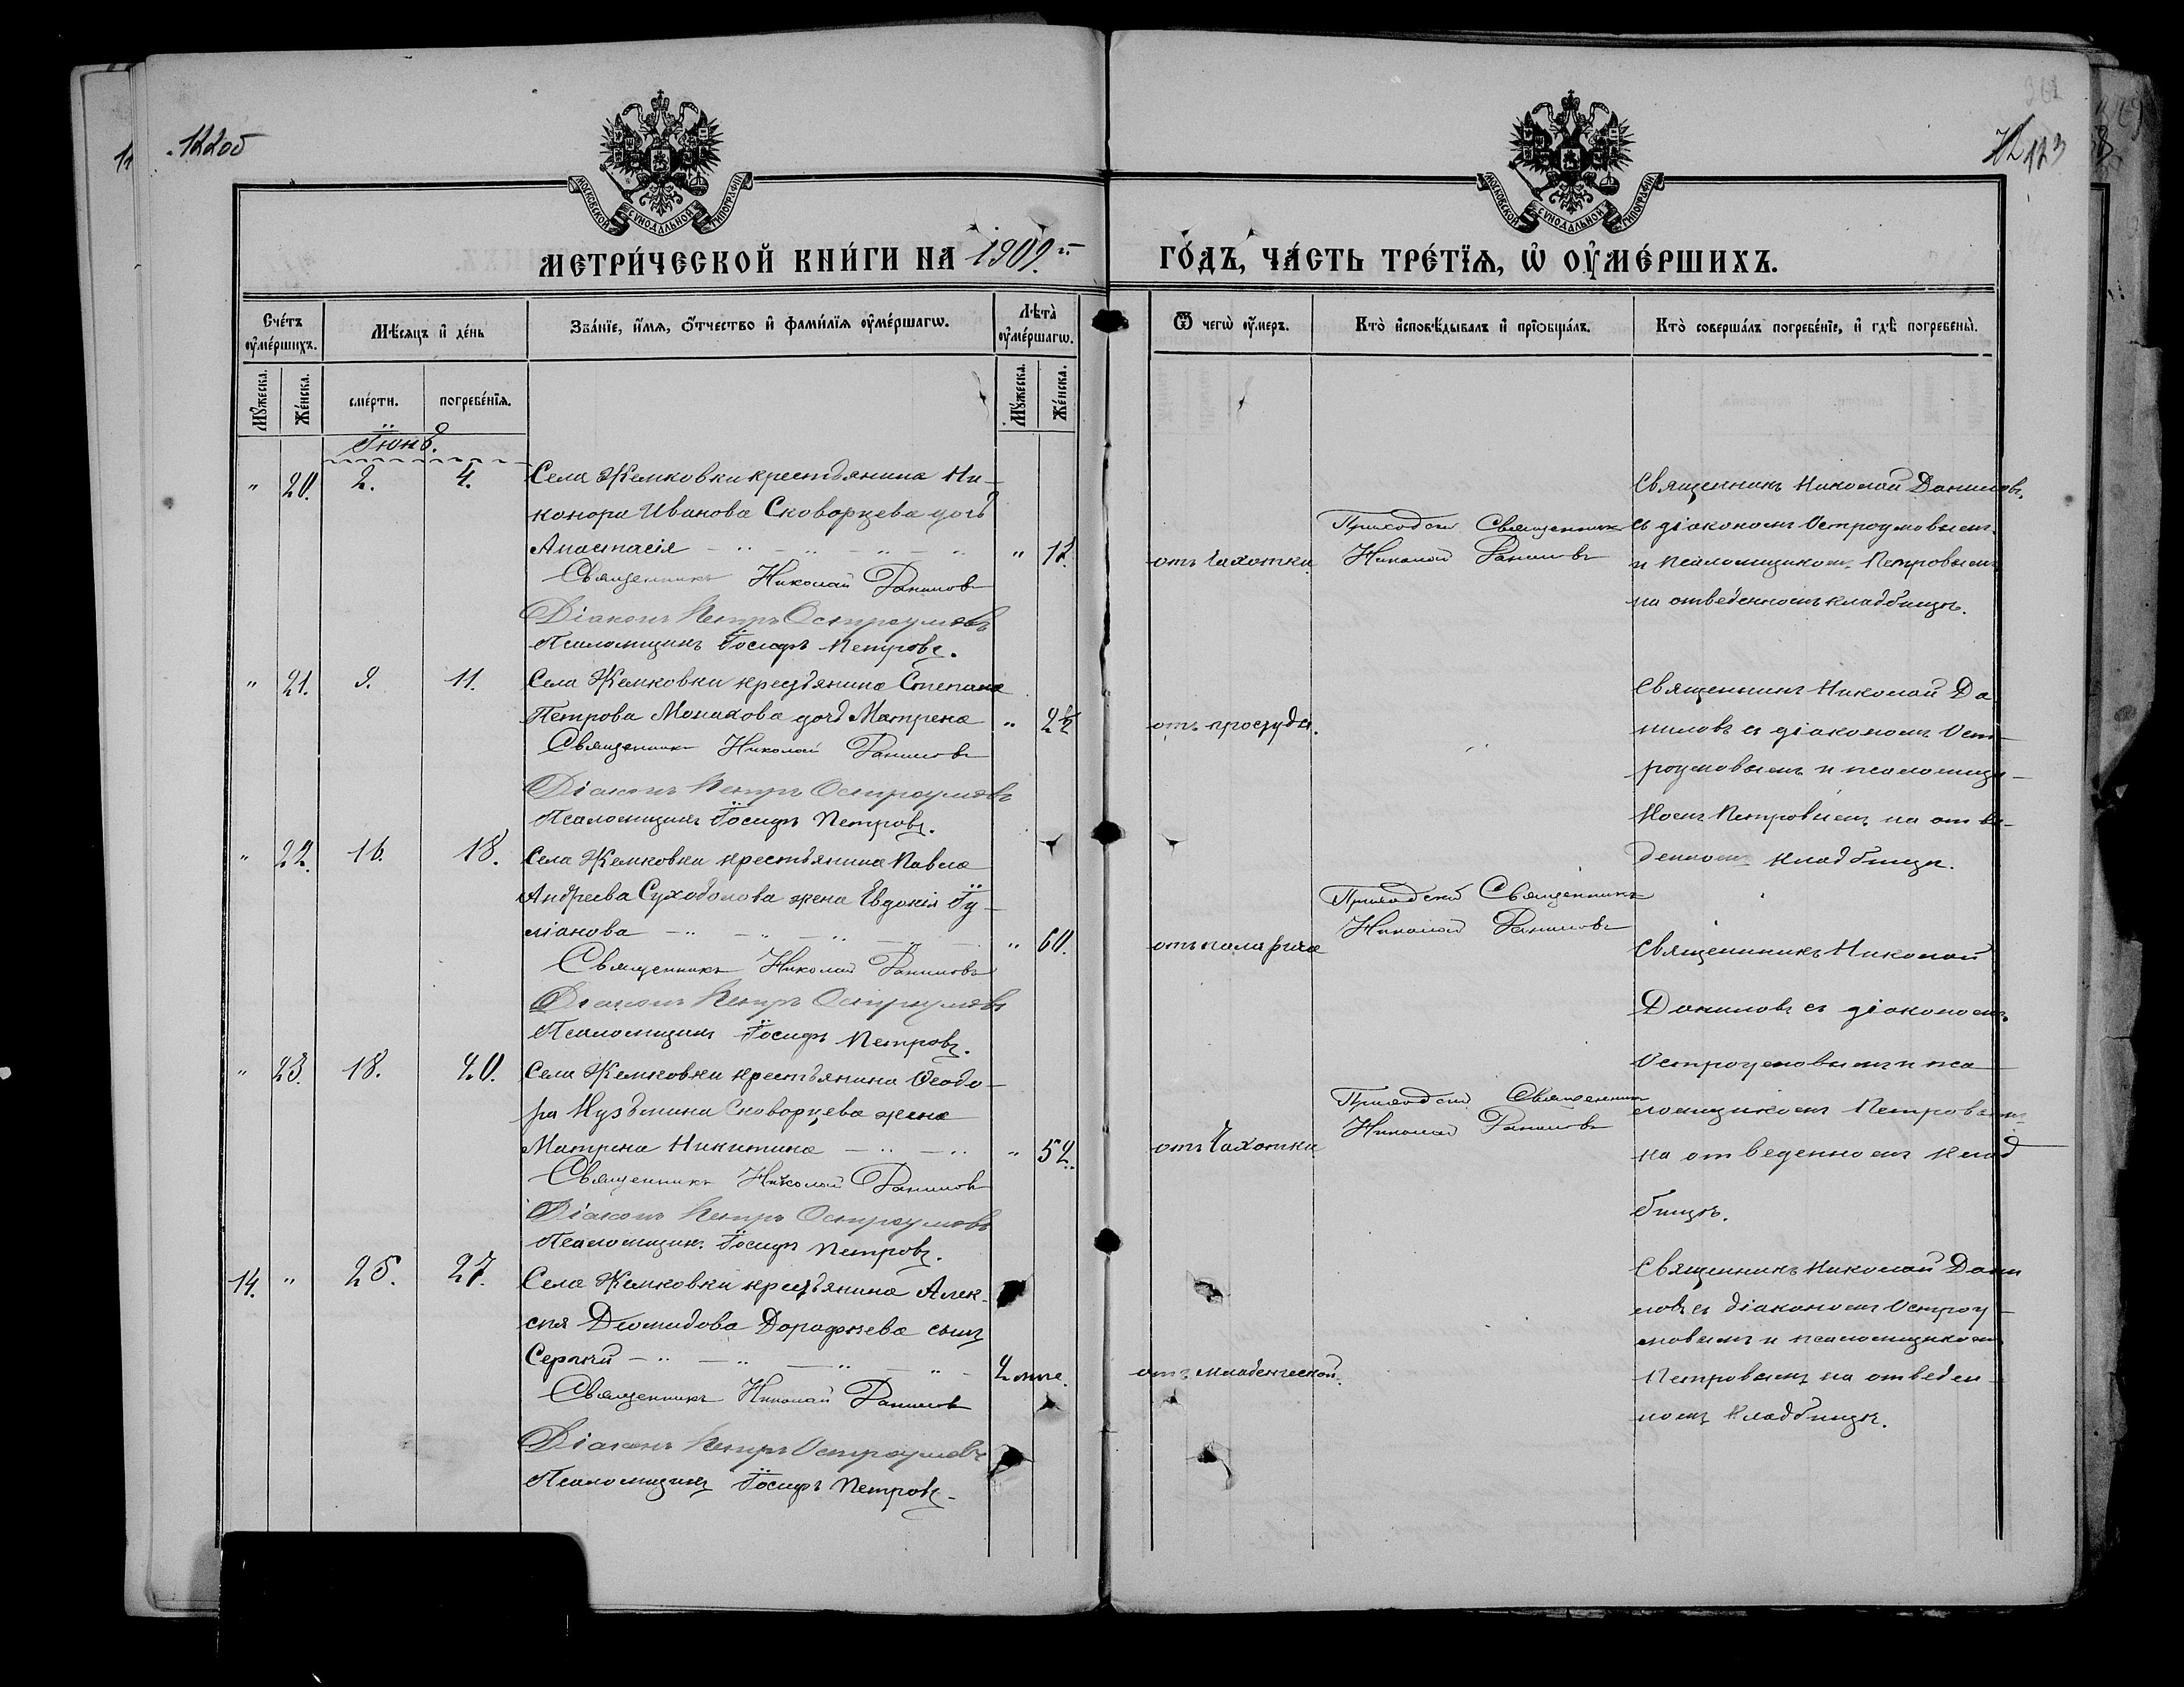 122об
123
МОСКОВСКОЙ СУНОДАЛЬНОЙ ТИПОГРАФІИ
МОСКОВСКОЙ СУНОДАЛЬНОЙ ТИПОГРАФІИ
МЕТРИ́ЧЕСКОЙ КНИ́ГИ НА 1909й
ГО́ДЪ, ЧА́СТЬ ТРЕ́ТЇѦ, Ѡ҆ ОУ҆МЕ́РШИХЪ.
Сче́тъ оу҆ме́ршихъ.
Мѣ́сѧцъ и҆ де́нь
Зва́нїе, и҆́мѧ, ѻ҆́тчество и҆ фами́лїѧ оу҆ме́ршагѡ.
Лѣта̀ оу҆ме́ршагѡ.
Ѿ чегѡ̀ оу҆́меръ.
Кто̀ и҆сповѣ́дывалъ и҆ прїѡбща́лъ.
Кто̀ соверша́лъ погребе́нїе, и҆ гдѣ̀ погребены̀.
Мꙋ́жеска.
Же́нска.
сме́рти.
погребе́нїѧ.
Мꙋ́жеска.
Же́нска.
Іюнь.
" 20. 2. 4.
Села Жемковки крестьянина Ни-
канора Иванова Скворцева дочь
Анастасія " 12.
Священникъ Николай Даниловъ
Діаконъ Петръ Остроумовъ
Псаломщикъ Іосифъ Петровъ.
отъ чахотки
Приходскій Священникъ
Николай Даниловъ
Священникъ Николай Даниловъ
съ діакономъ Остроумовымъ
и псаломщикомъ Петровымъ
на отведенномъ кладбищѣ.
" 21. 9. 11.
Села Жемковки крестьянина Степана
Петрова Монахова дочь Матрена " 2½
Священникъ Николай Даниловъ
Діаконъ Петръ Остроумовъ
Псаломщикъ Іосифъ Петровъ.
отъ простуды.
Священникъ Николай Да
ниловъ съ діакономъ Ост-
роумовымъ и псаломщи-
комъ Петровымъ на отве-
денномъ кладбищѣ.
" 22. 16. 18.
Села Жемковки крестьянина Павла
Андреева Суходолова жена Евдокія Іу-
ліанова " 60.
Священникъ Николай Даниловъ
Діаконъ Петръ Остроумовъ
Псаломщикъ Іосифъ Петровъ.
отъ паралича
Приходскій Священникъ
Николай Даниловъ
Священникъ Николай
Даниловъ съ діакономъ
Остроумовымъ и пса
ломщикомъ Петровымъ
на отведенномъ клад
бищѣ.
" 23. 18. 20.
Села Жемковки крестьянина Ѳеодо-
ра Кузьмина Скворцева жена
Матрена Никитина " 52.
Священникъ Николай Даниловъ
Діаконъ Петръ Остроумовъ
Псаломщикъ Іосифъ Петровъ.
отъ чахотки
Приходскій Священникъ
Николай Даниловъ
14. " 25. 27.
Села Жемковки крестьянина Алек-
сѣя Діомидова Дорофѣева сынъ
Сергѣй
Священникъ Николай Даниловъ
Діаконъ Петръ Остроумовъ
Псаломщикъ Іосифъ Петровъ
отъ младенческой.
Священникъ Николай Дани
ловъ съ діакономъ Остроу-
мовымъ и псаломщикомъ
Петровымъ на отведен-
номъ кладбищѣ.